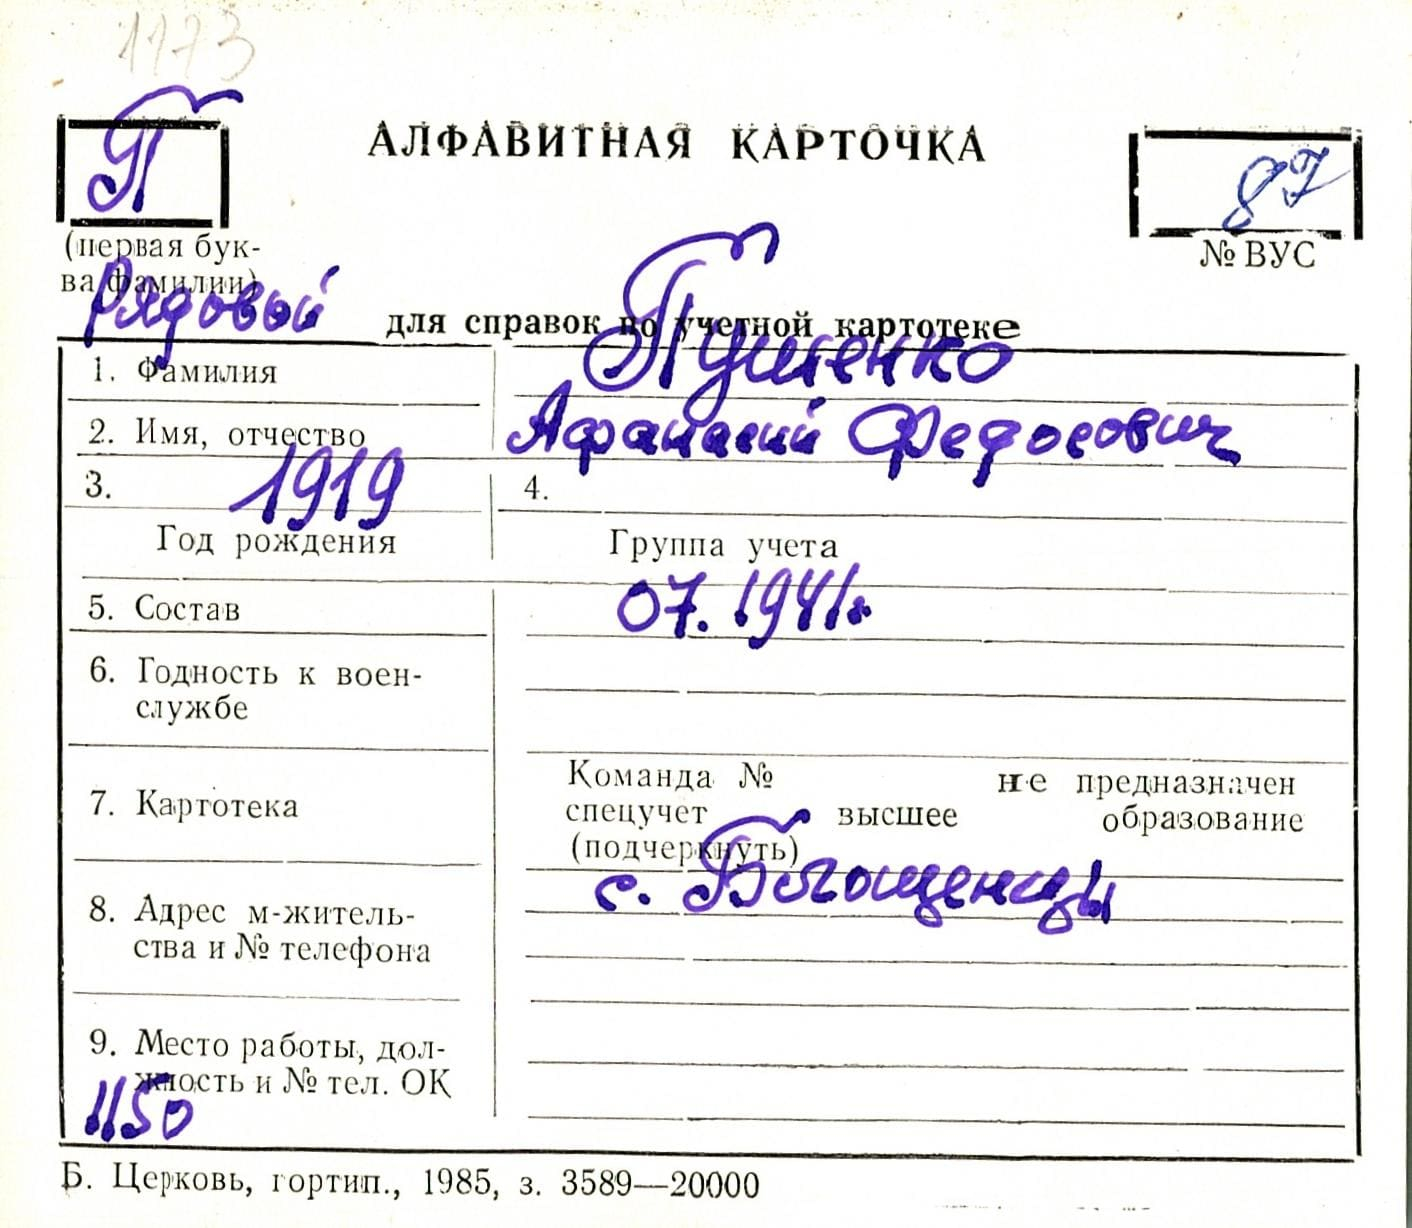 1173
П
АЛФАВИТНАЯ КАРТОЧКА
87
(первая бук-
ва фамилии)
№ ВУС
Рядовый
для справок по учетной картотеке
1. Фамилия
2. Имя, отчество
Афанасий Федосович
3. 1919
4.
Год рождения
Группа учета
5. Состав
07. 1941г.
6. Годность к воен-
службе
7. Картотека
Команда № не предназначен
спецучет высшее образование
(подчеркнуть)
8. Адрес м-житель-
ства и № телефона
с.
9. Место работы, дол-
жность и № тел. ОК
1150
Б. Церковь, гортип., 1985, з. 3589—20000